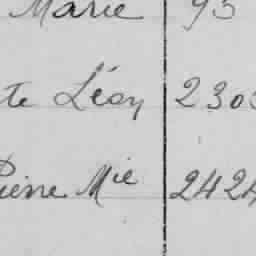 Marie 93
te Léon 230
Pierre Mie 2424